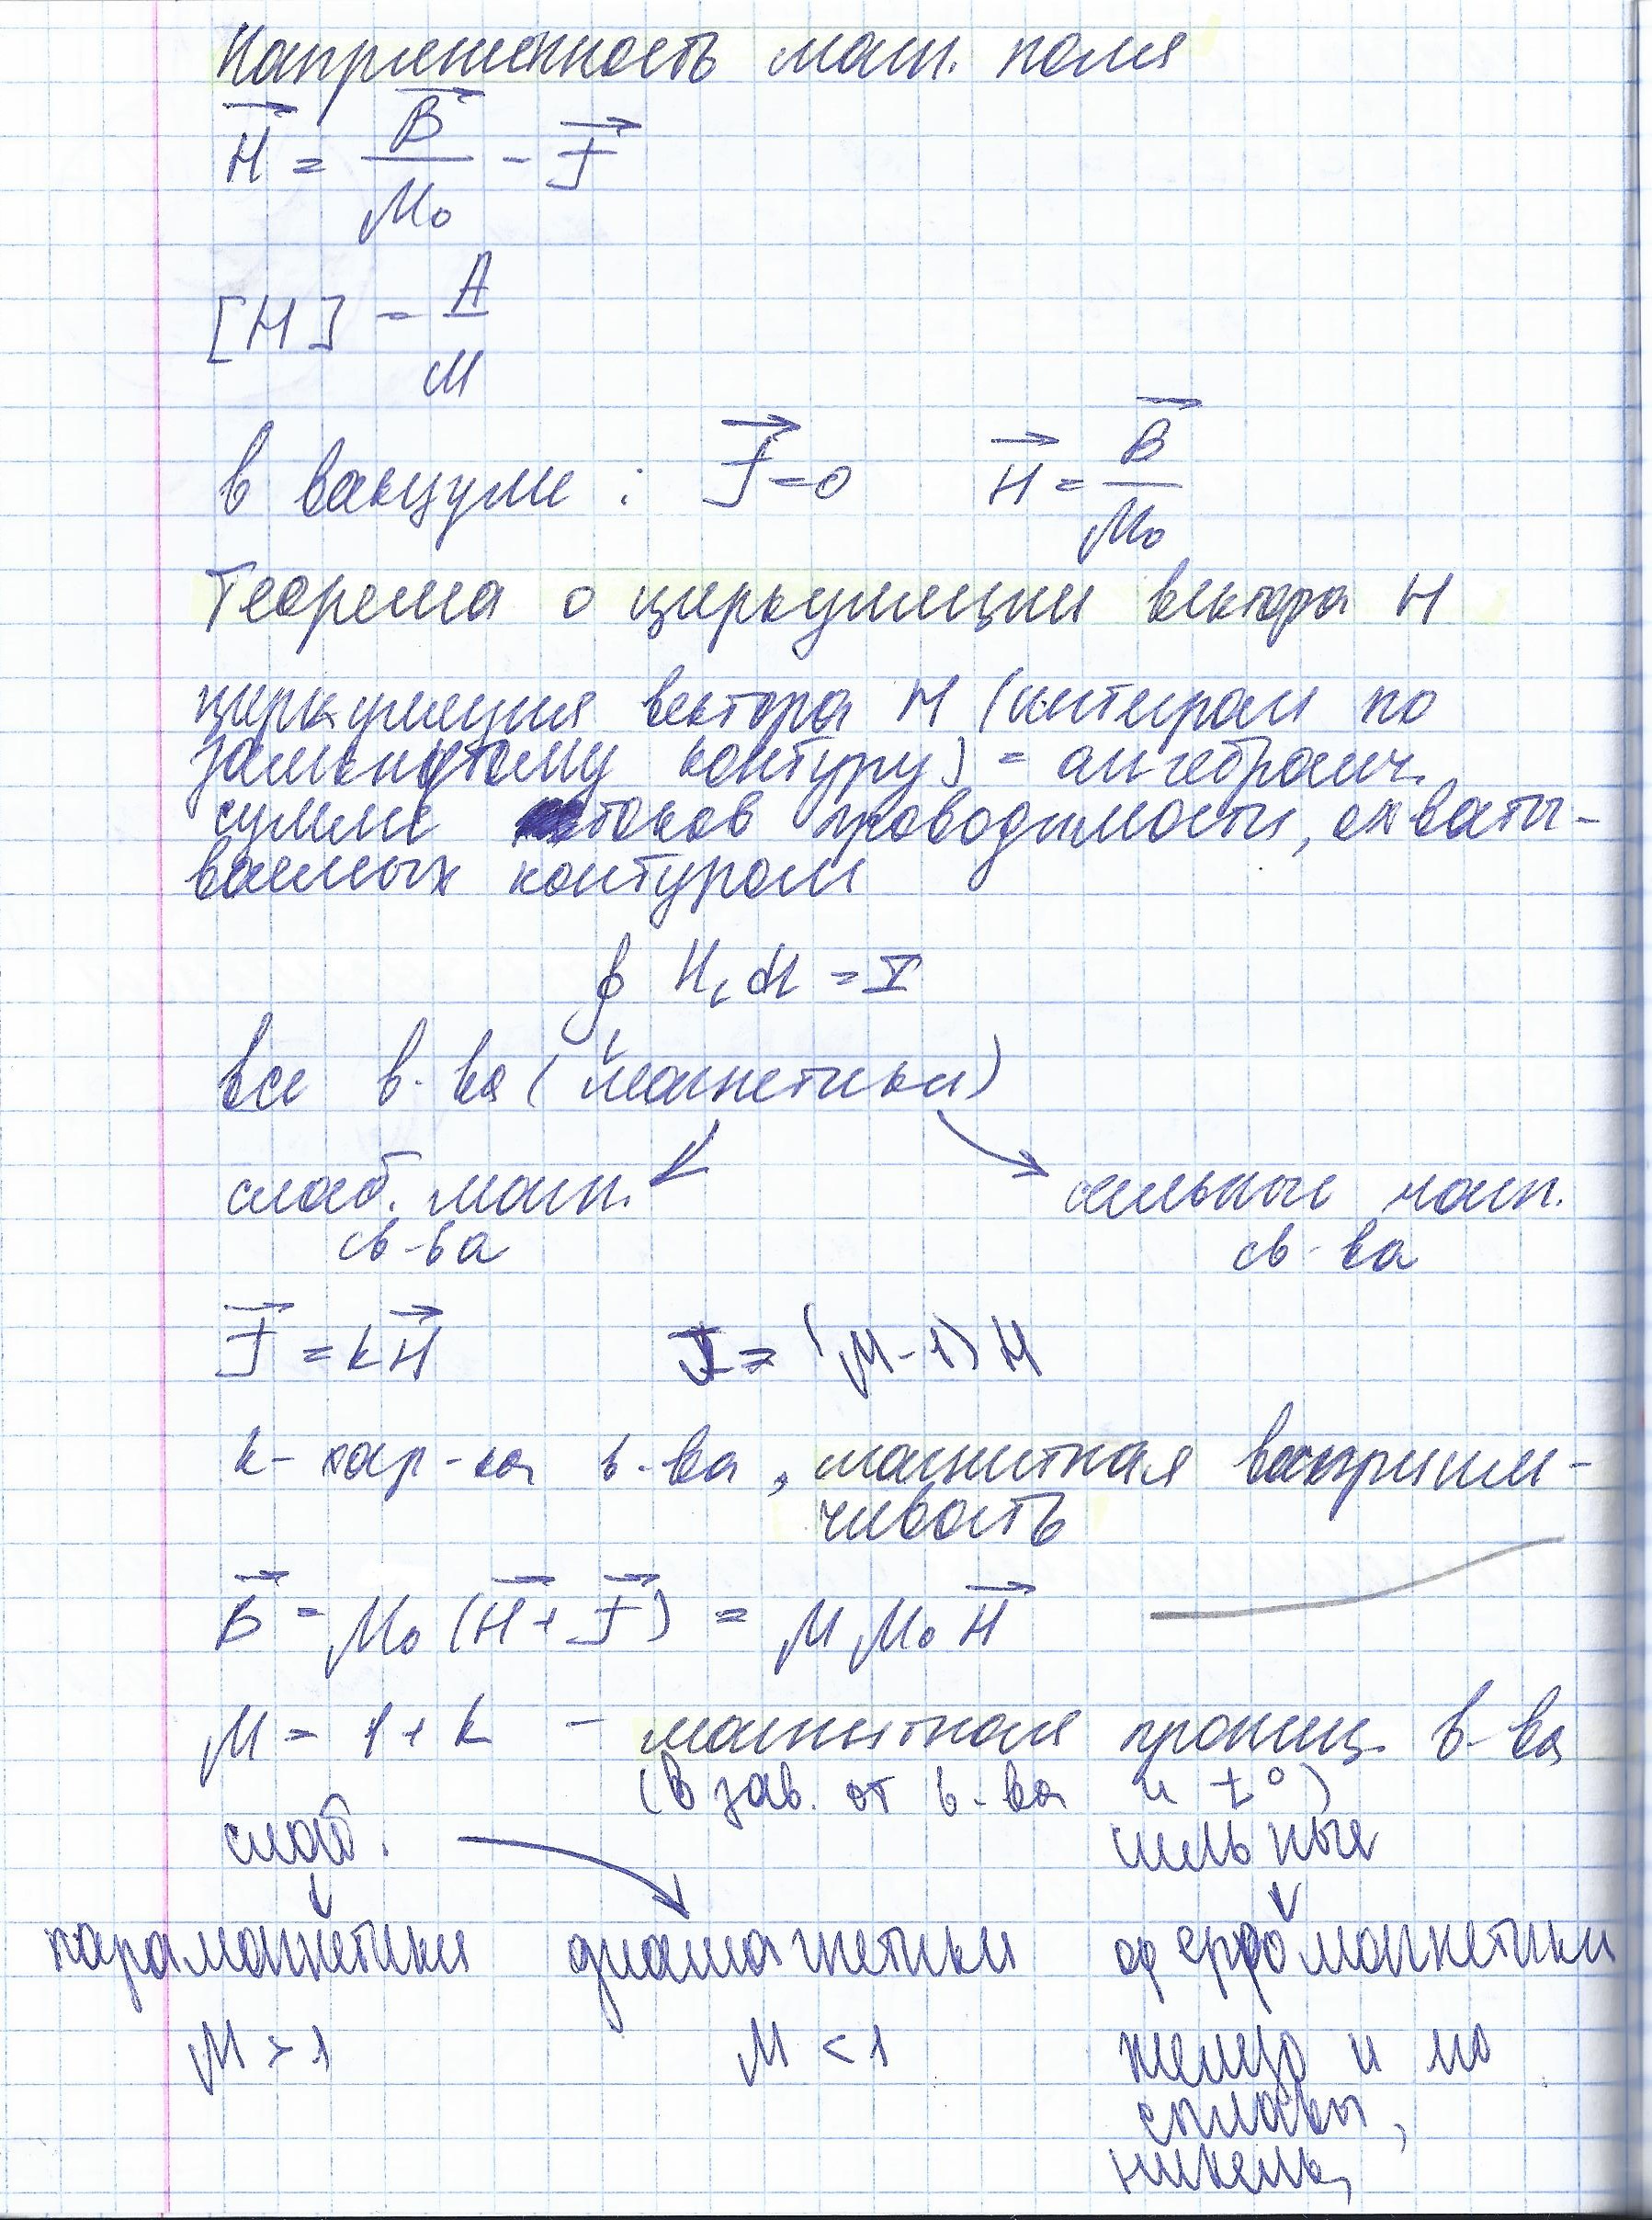 Напряженность магн. поля
H⃗ = B⃗/μ₀ - J⃗
[H] = А/м
в вакууме : J⃗=0 H⃗ = B⃗/μ₀
Теорема о циркуляции вектора H
циркуляция вектора H (интеграл по
замкнутому контуру) = алгебраич.
сумме токов проводимости, охваты-
ваемых контуром
∮ Hₗ dl = I
все в-ва (магнетики)
слаб. магн. сильные магн.
св-ва св-ва
J⃗ = kH⃗ J = (μ-1)H
k- хар-ка в-ва, магнитная восприим-
чивость
B⃗ = μ₀(H⃗+J⃗) = μμ₀H⃗
μ = 1+k - магнитная прониц. в-ва
(в зав. от в-ва и t°)
слаб. сильные
парамагнетики диамагнетики ферромагнетики
μ > 1 μ < 1 железо и его
сплавы,
никель,